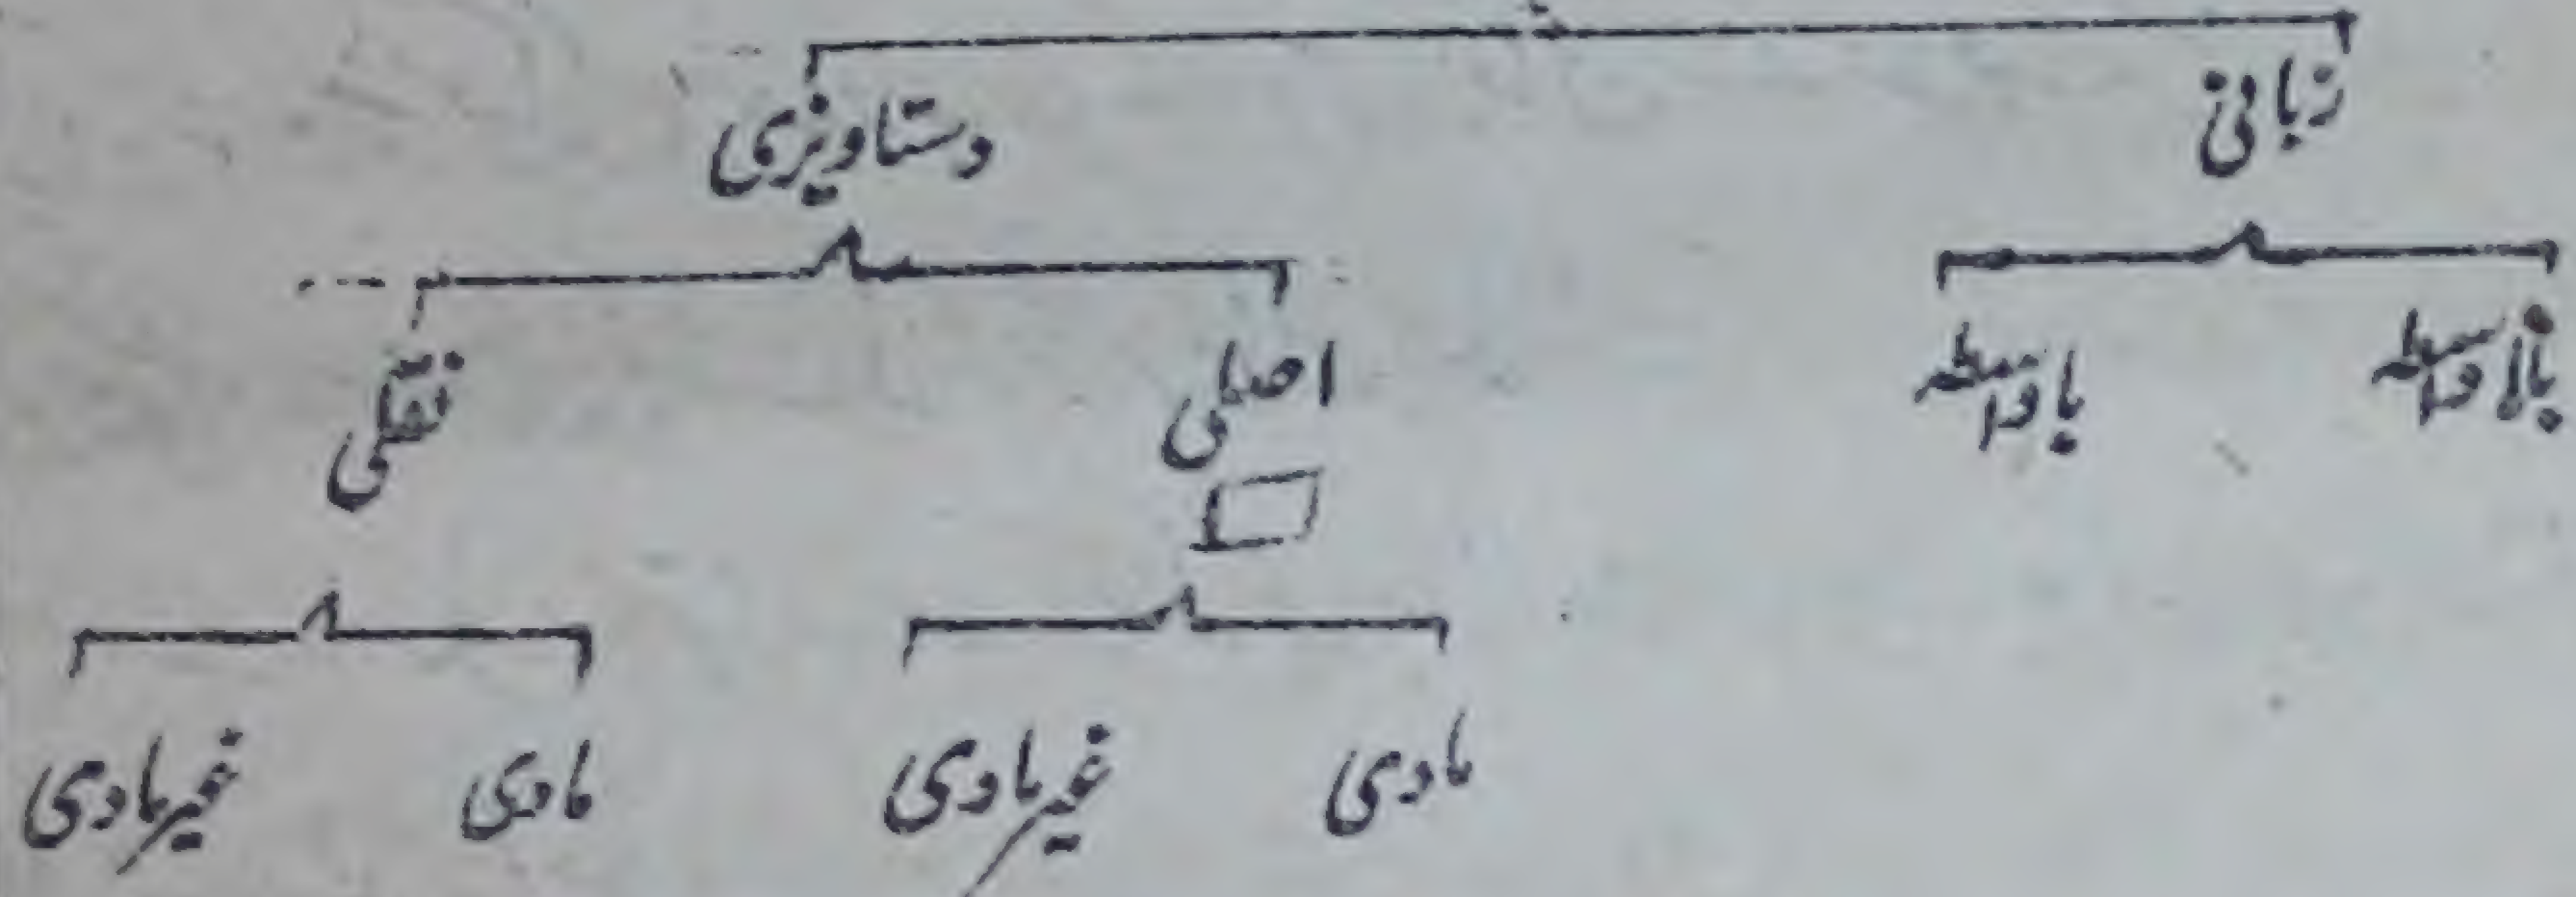 زبانی دستاویزی
بالواسطہ باواسطہ اصلی نقلی
مادی غیرمادی مادی غیرمادی